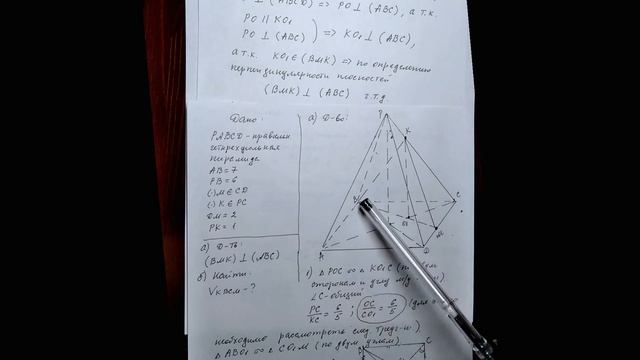 ⊥ (ABCD) => PO ⊥ (ABC), а т.к.
PO || KO₁
PO ⊥ (ABC) => KO₁ ⊥ (ABC),
а т.к. KO₁ ∈ (BMK) => по определению
перпендикулярности плоскостей
(BMK) ⊥ (ABC) ч.т.д
Дано:
PABCD - правильн
четырехугольная
пирамида
AB = 7
PB = 6
(·) M ∈ CD
(·) K ∈ PC
DM = 2
PK = 1
а) Д-ть:
(BMK) ⊥ (ABC)
б) Найти:
V KBCM - ?
а) Д-во:
P
K
B
C
O₁
M
A
D
1) △ POC ∾ △ KO₁C (по двум
сторонам и углу м/у
∠C - общий
PC/KC = 6/5 ; OC/CO₁ = 6/5 (для
необходимо рассмотреть
△ ABO₁ ∾ △ CO₁M (по двум углам)